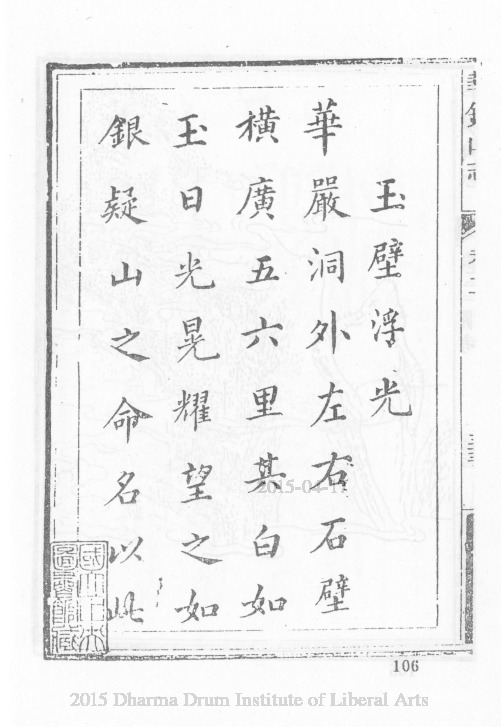 玉壁浮光
華嚴洞外左右石壁
橫廣五六里其白如
玉日光晃耀望之如
銀疑山之命名以此
2015-04-17
106
2015 Dharma Drum Institute of Liberal Arts